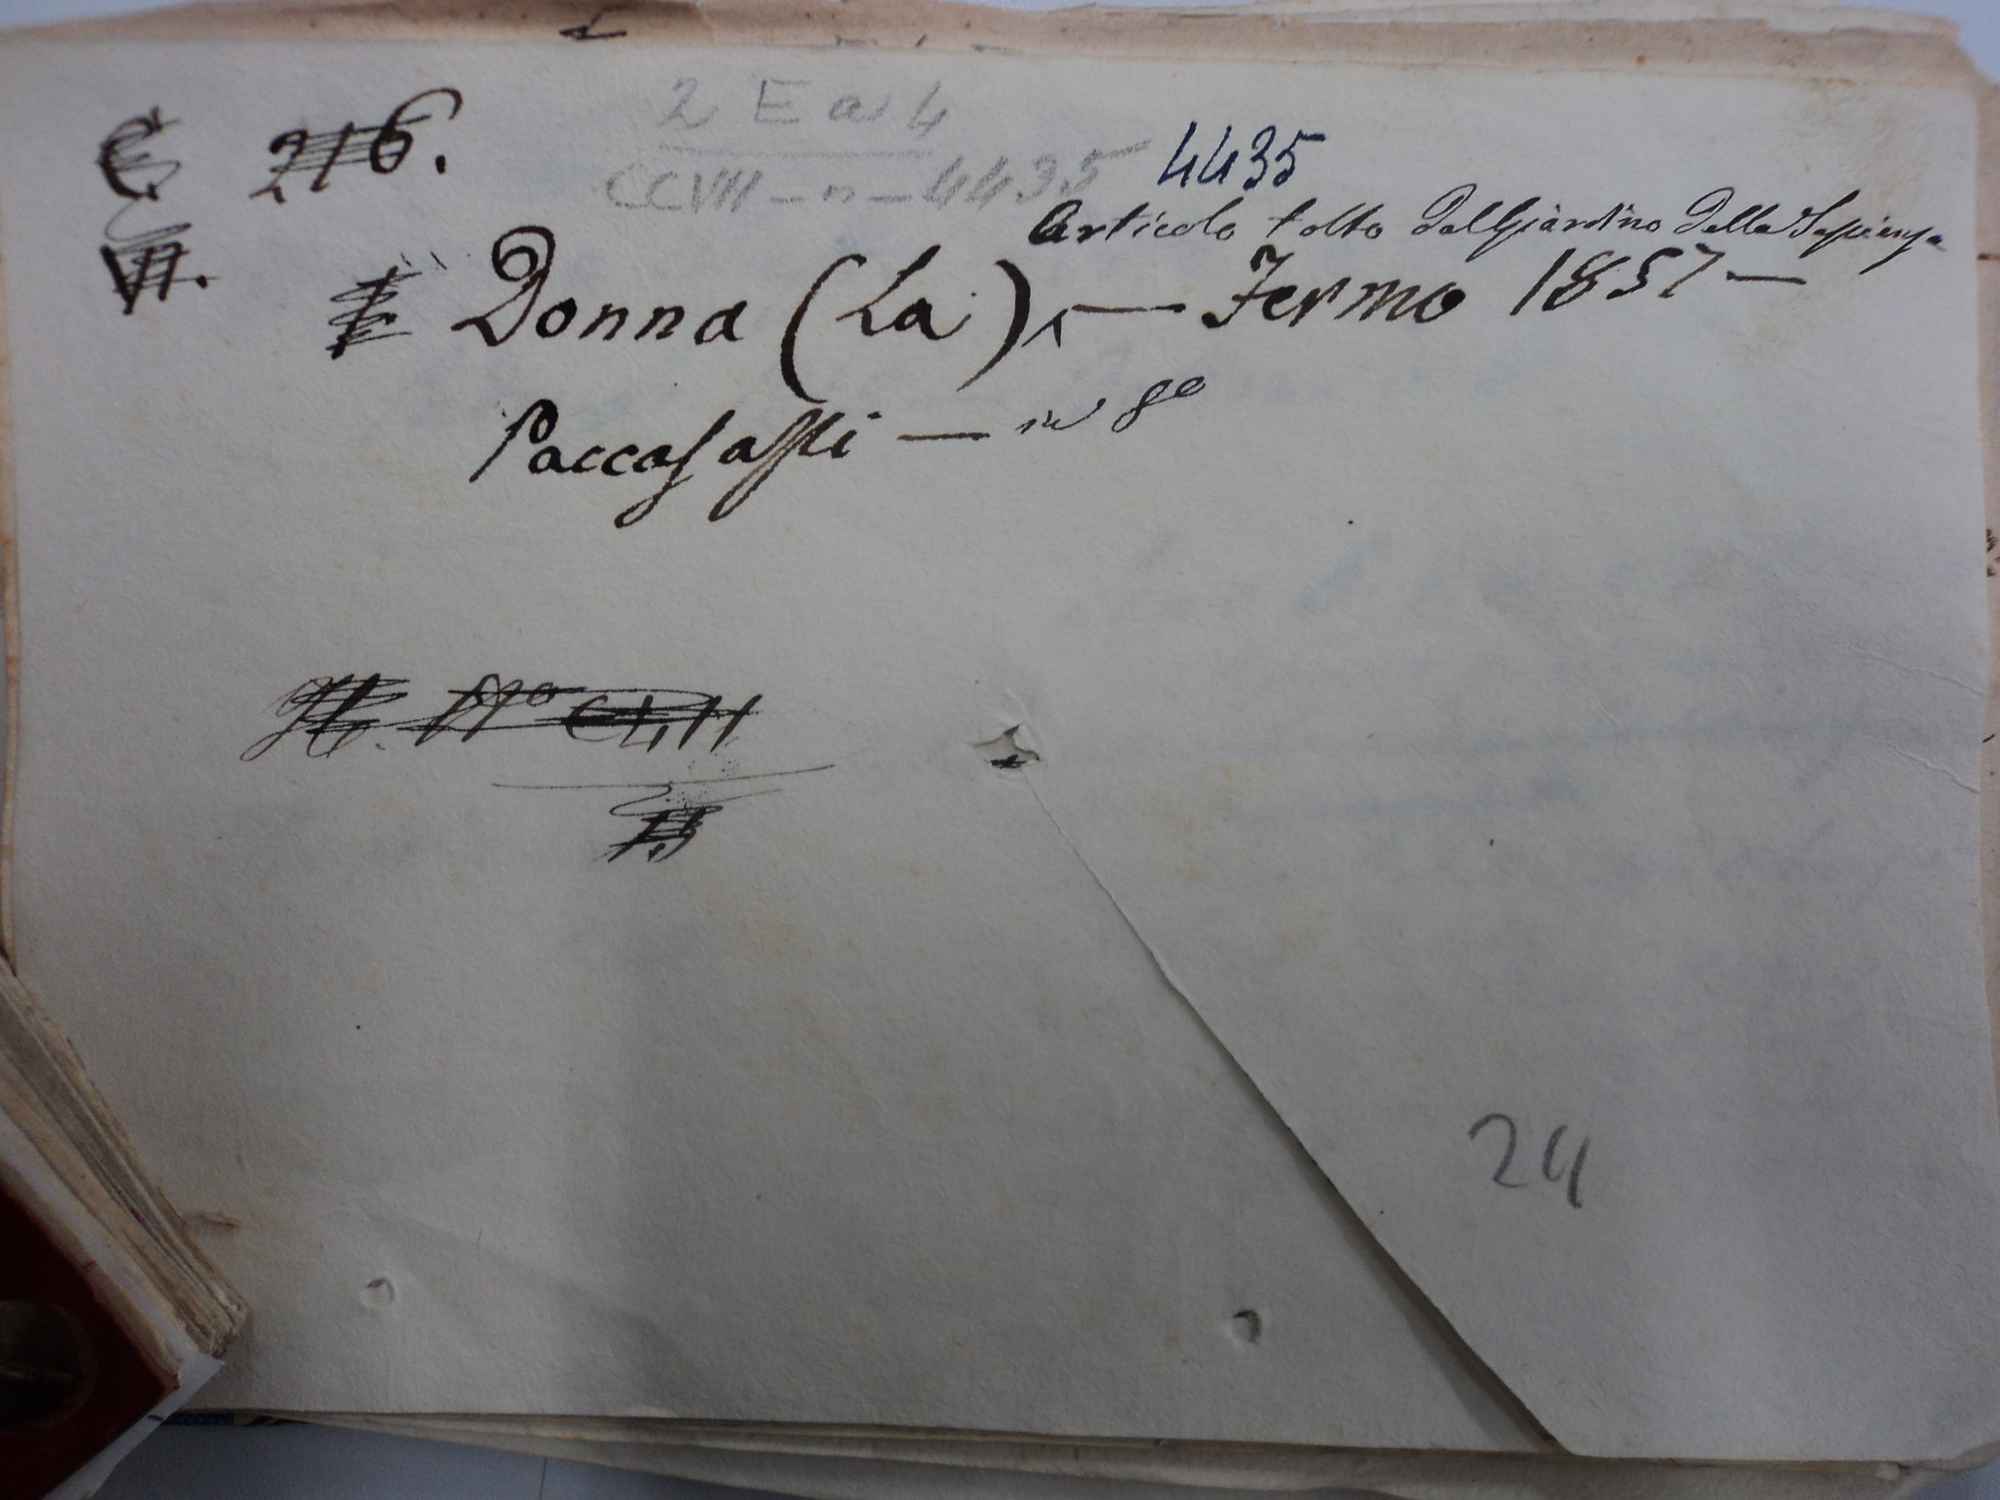 2 E a 4
C 216. CCVII - n - 4435 4435
VII.
Articolo tolto dal Giardino della Sapienza
Donna (La) — Fermo 1857 —
Paccasassi — in 8°
N° CLII
24